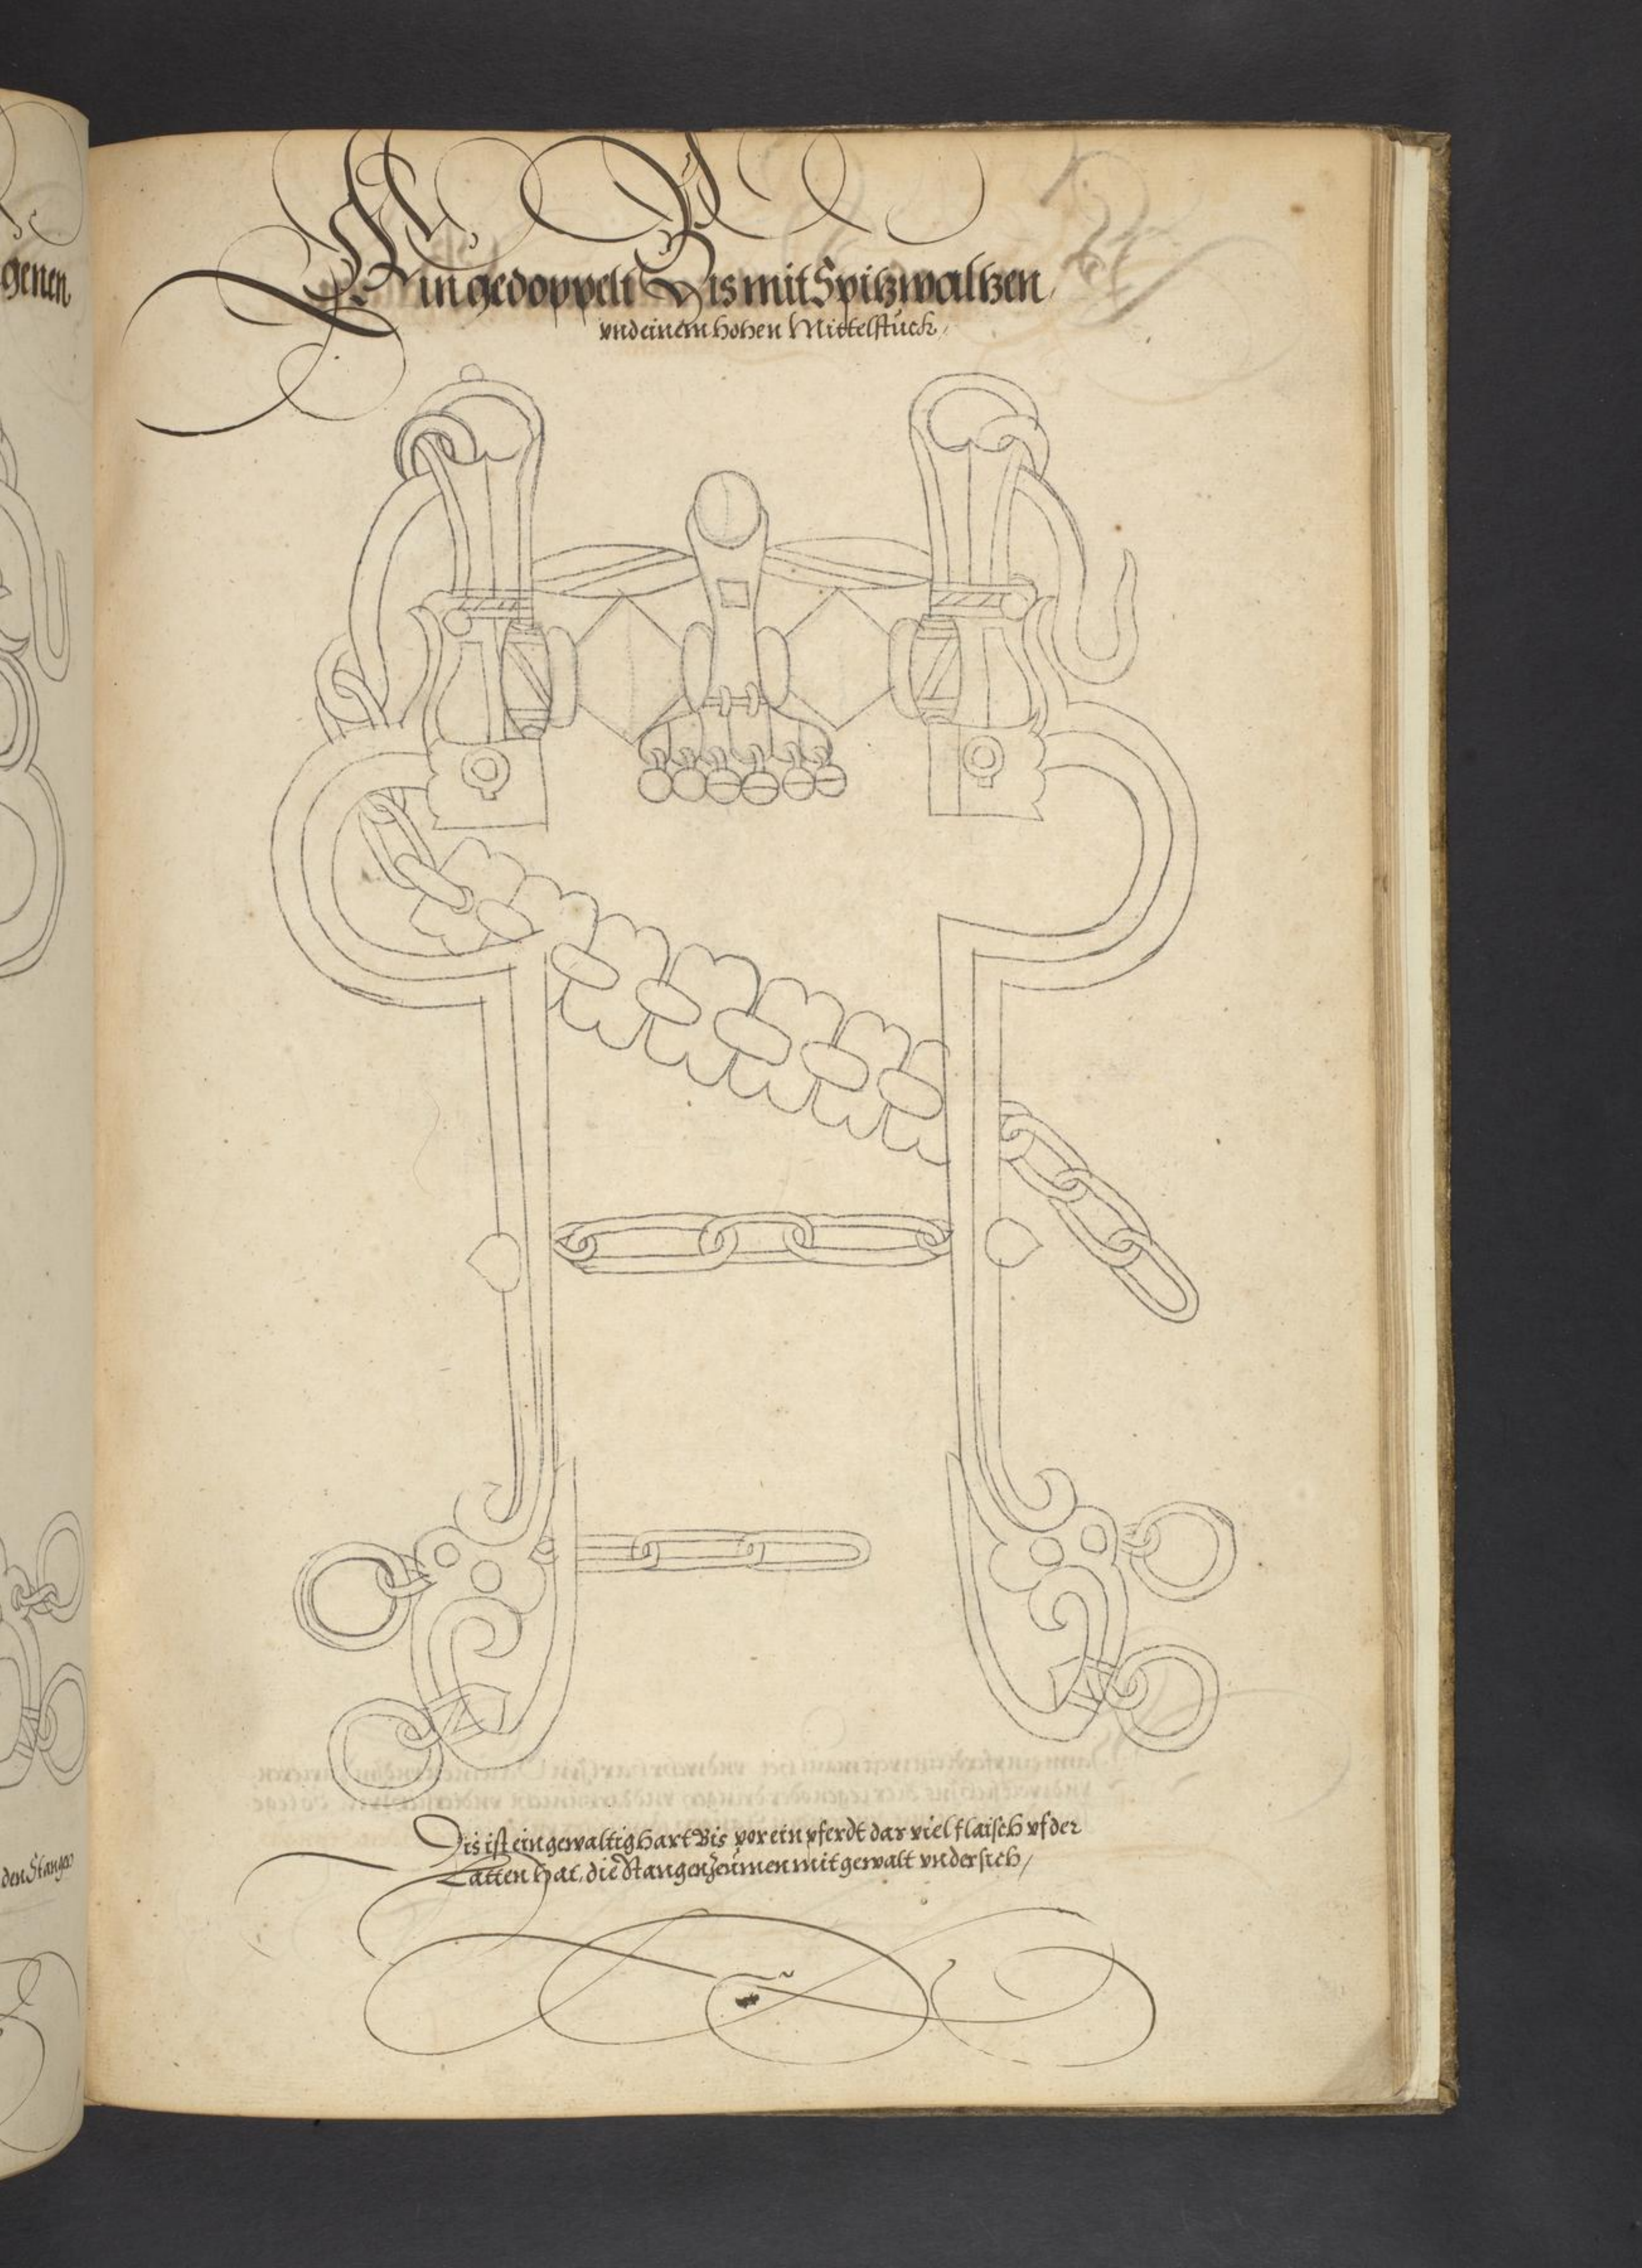 genen
Ein gedoppelt Bis mit Spitzwaltzen,
vnd einem hohen Mittelstuck,
den Stangen
Dis ist ein gewaltig hart Bis vor ein pferdt dar viel flaisch vf der
Latten hat, die Stangen Zeumen mit gewalt vndersich,